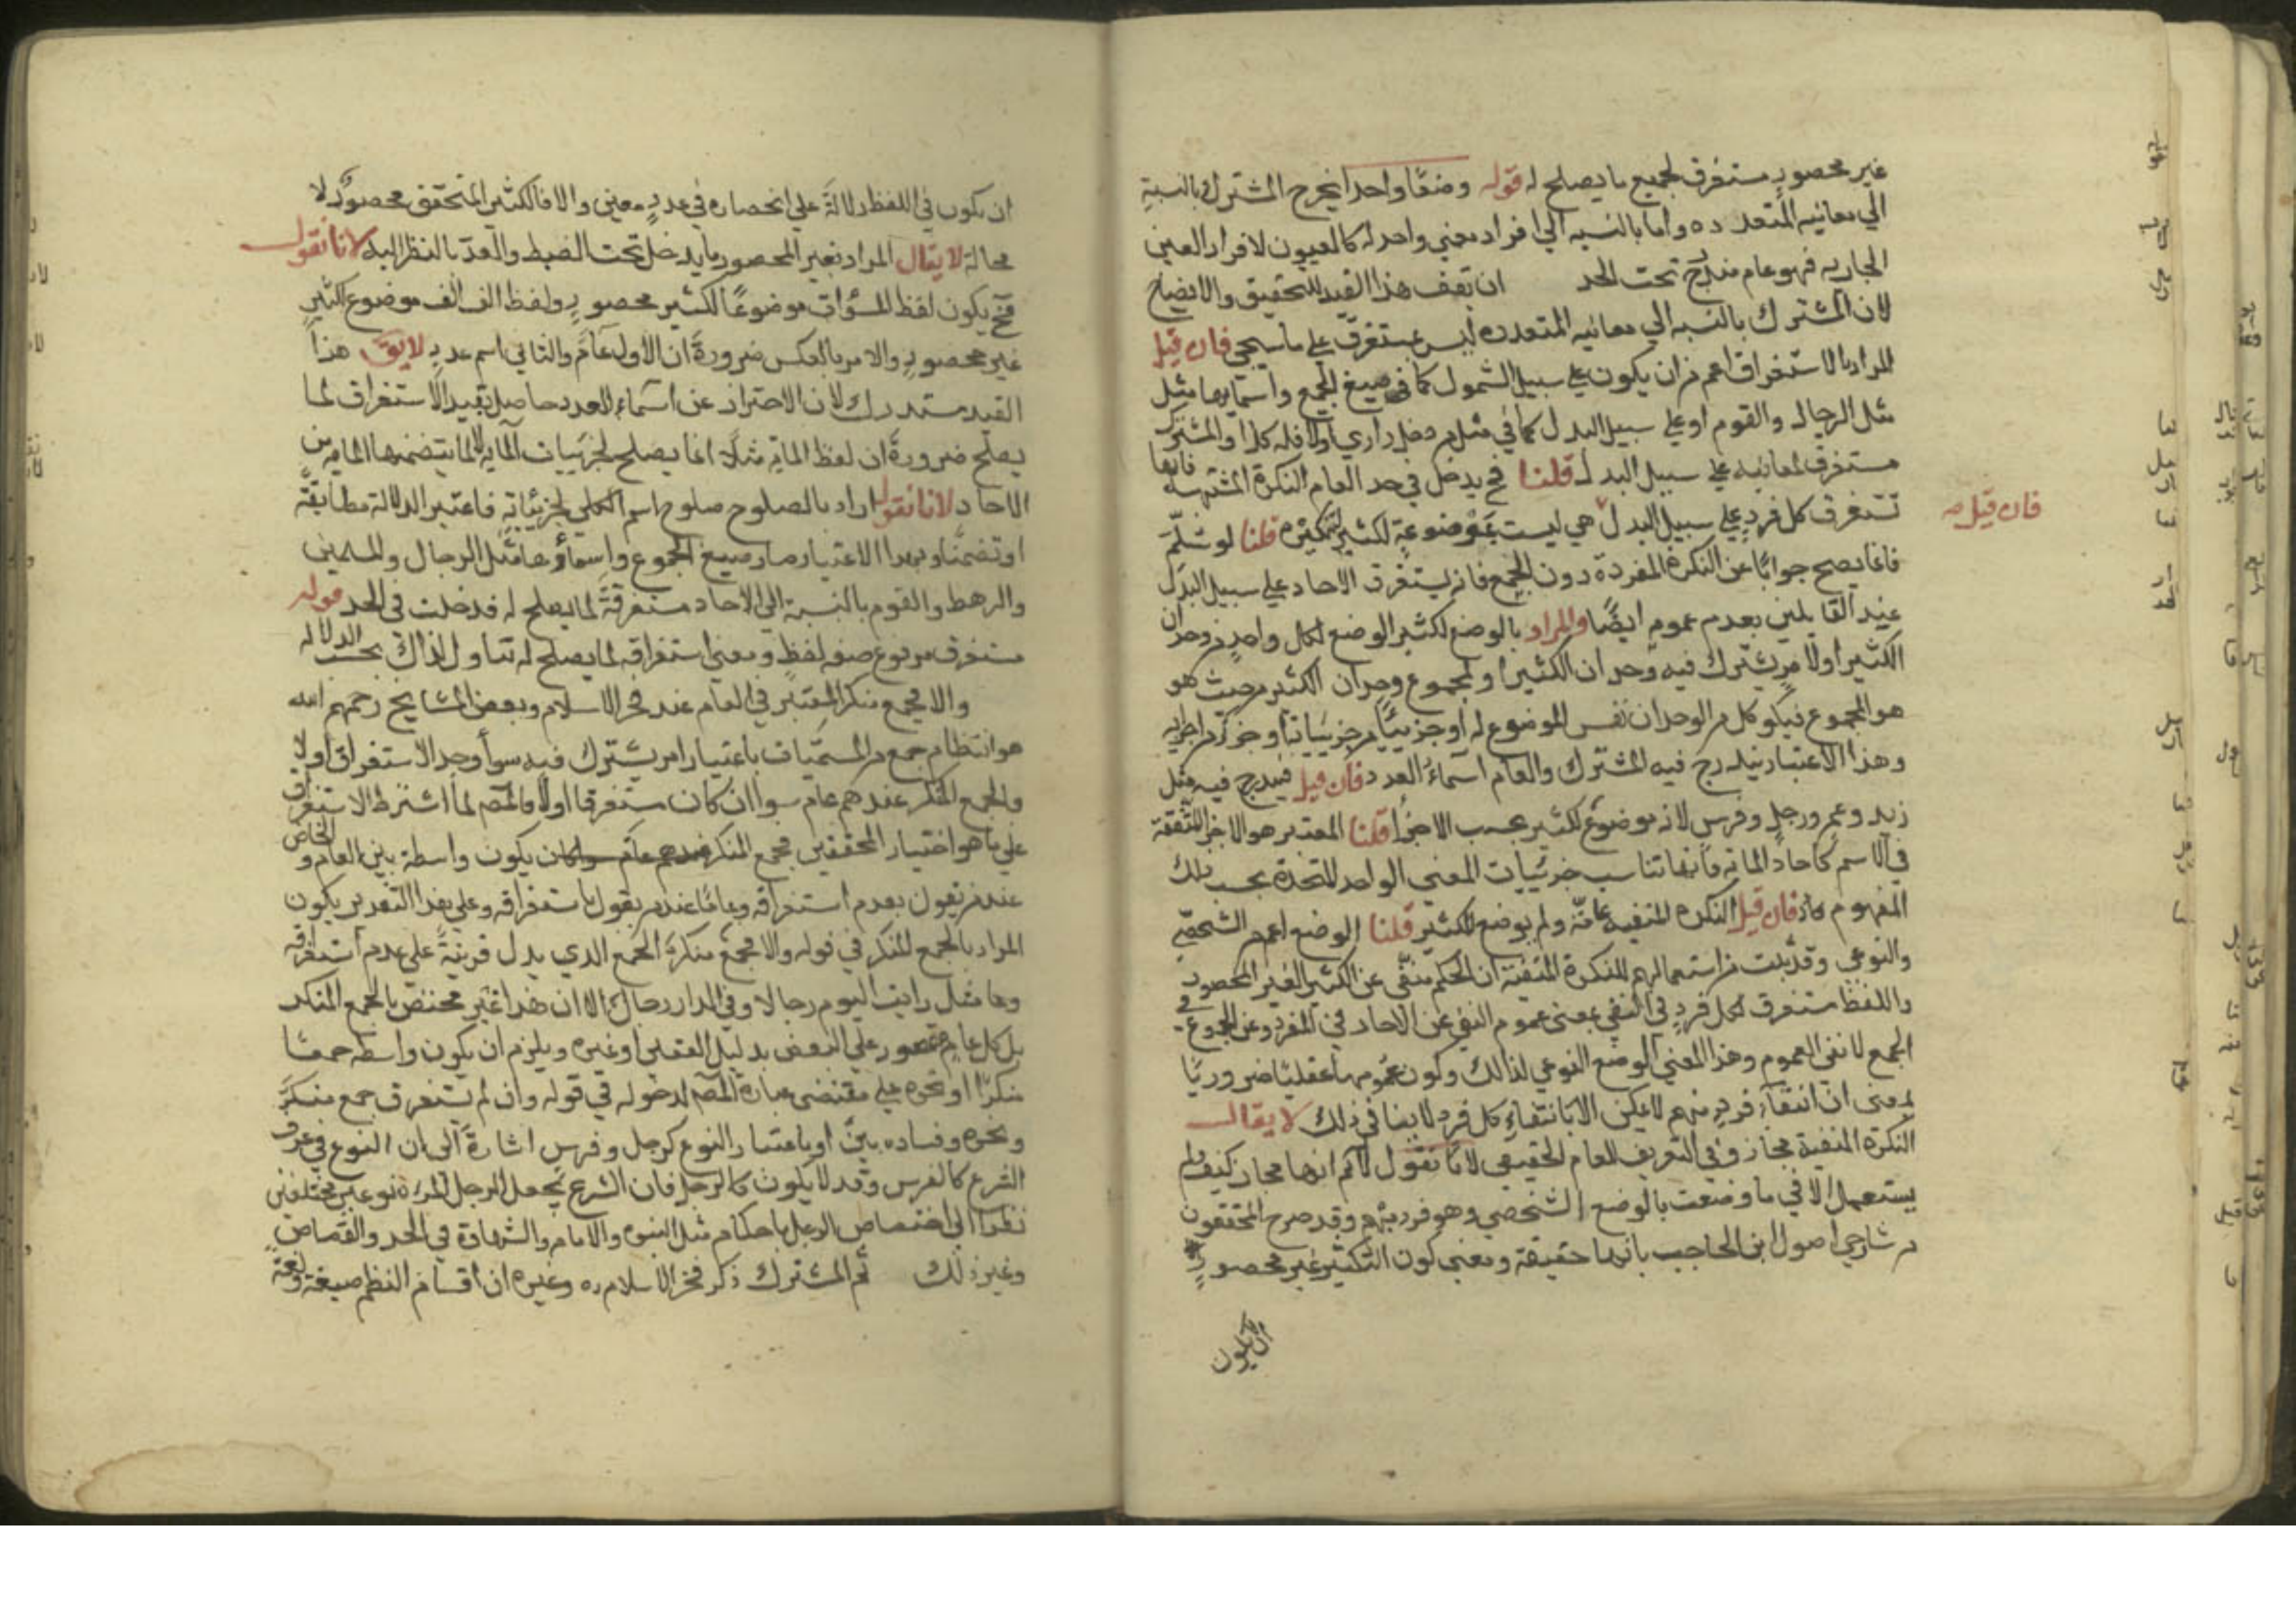 غير محصور مستغرق لجميع ما يصلح له قوله وضعا واحدا يخرج المشترك بالنسبة
الي معانيه المتعدده واما بالنسبه الي افراد معني واحد له كالعيون لافراد العين
الجاريه فهو عام مندرج تحت الحد ان تقف هذا القيد للتحقيق والايضاح
لان المشترك بالنسبه الي معانيه المتعدده ليس بمستغرق علي ما سيجي فان قيل
المراد بالاستغراق اعم من ان يكون علي سبيل الشمول كما في صيغ الجمع واسمايها مثل
مثل الرجال والقوم او علي سبيل البدل كما في مثل من دخل داري اولا فله كذا والمشترك
مستغرق لمعانيه علي سبيل البدل قلنا فح يدخل في حد العام النكرة المثبتة فانها
تستغرق كل فرد علي سبيل البدل فان قيل هي ليست بموضوعة لكثير قلنا لو سلم
فانما يصح جوابا عن النكرة المفردة دون الجمع فانه يستغرق الاحاد علي سبيل البدل
عند القايلين بعدم عمومه ايضا والمراد بالوضع لكثير الوضع لكل واحد من وحدان
الكثير او لامر يشترك فيه وحدان الكثير او لمجموع وحدان الكثير من حيث هو
هو المجموع فيكون كل من الوحدان نفس الموضوع له او جزئيا من جزئياته او جزءا من اجزايه
وهذا الاعتبار يندرج فيه المشترك والعام اسماء العدد فان قيل فيندرج فيه مثل
زيد وعمر ورجل وفرس لانه موضوع لكثير بحسب الاجزا قلنا المعتبر هو الاجزا المتفقة
في الاسم كاحاد المايه فانها تناسب جزئيات المعني الواحد المتحدة بحسب ذلك
المفهوم فان قيل النكره المنفيه عامة ولم يوضع للكثير قلنا الوضع اعم من الشخصي
والنوعي وقد ثبت من استعمالهم للنكرة المنفية ان الحكم منفي عن الكثير الغير المحصور
واللفظ مستغرق لكل فرد في النفي بمعني عموم النفي عن الاحاد في المفرد وعن المجموع في
الجمع لا نفي العموم وهذا المعني الوضع النوعي لذالك وكون عمومها عقليا ضروريا
بمعني ان انتفاء فرد مبهم لا يمكن الا بانتفاء كل فرد لا ينافي ذلك لا يقال
النكرة المنفية مجاز وفي التعريف للعام الحقيقي لانا نقول لا نم انها مجاز كيف ولم
يستعمل الا في ما وضعت بالوضع الشخصي وهو فرد مبهم وقد صرح المحققون
من شارحي اصول ابن الحاجب بانها حقيقة ومعني كون الكثير غير محصور
ان يكون
ان يكون في اللفظ دلالة علي انحصاره في عدد معين والا فالكثير المتحقق محصور لا
محالة لا يقال المراد بغير المحصور ما يدخل تحت الضبط والعد بالنظر اليه لانا نقول
فح يكون لفظ السموات موضوعا لكثير محصور ولفظ الف الف موضوع لكثير
غير محصور والامر بالعكس ضرورة ان الاول عام والثاني اسم عدد لا يق هذا
القيد مستدرك لان الاحتراز عن اسماء العدد حاصل بقيد الاستغراق لما
يصلح ضرورة ان لفظ الماية مثلا انما يصلح لجزئيات الماية لا لما يتضمنها الماية من
الاحاد لانا نقول اراد بالصلوح صلوح اسم الكلي لجزئياته فاعتبر الدلالة مطابقة
او تضمنا وبهذا الاعتبار صار صيغ الجموع واسماؤها مثل الرجال والمسلمين
والرهط والقوم بالنسبة الي الاحاد مستغرقة لما يصلح له فدخلت في الحد قوله
مستغرق مرفوع صفه لفظ ومعني استغراقه لما يصلح له تناوله لذالك بحسب الدلاله
والا فجمع منكر المعتبر في العام عند فخر الاسلام وبعض المشايخ رحمهم الله
هو انتظام جمع من المسميات باعتبار امر يشترك فيه سوا وجد الاستغراق او لا
والجمع المنكر عندهم عام سوا ان كان مستغرقا او لا فالمص لما اشترط الاستغراق
علي ما هو اختيار المحققين فجمع المنكر يكون واسطة بين العام والخاص
عند من يقول بعدم استغراقه وعاما عند من يقول باستغراقه وعلي هذا التقدير يكون
المراد بالجمع المنكر في قوله والا فجمع منكر الجمع الذي يدل قرينة علي عدم استغراقه
وها مثل رايت اليوم رجالا وفي الدار رجال الا ان هذا غير مختص بالجمع المنكر
بل كل عام مقصور علي البعض بدليل العقل او غيره ويلزم ان يكون واسطه جمعا
منكرا او نحوه علي مقتضي عبارة المص لدخوله في قوله وان لم يستغرق جمع منكر
ونحوه وفساده بين او باعتبار النوع كرجل وفرس اشارة الي ان النوع في عرف
الشرع كالفرس وقد لا يكون كالرجل فان الشرع يجعل الرجل والمراة نوعين مختلفين
نظرا الي اختصاص الرجل باحكام مثل النبوة والامامه والشهادة في الحد والقصاص
وغير ذلك ثم المشترك ذكر فخر الاسلام ره وغيره ان اقسام النظم صيغة ولغة